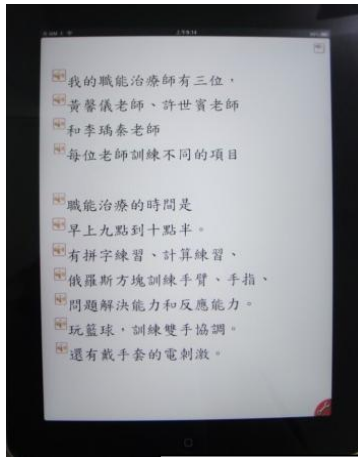 上午8:14
我的職能治療師有三位，
黃馨儀老師、許世賓老師
和李瑀秦老師
每位老師訓練不同的項目
職能治療的時間是
早上九點到十點半。
有拼字練習、計算練習、
俄羅斯方塊訓練手臂、手指、
問題解決能力和反應能力。
玩籃球，訓練雙手協調。
還有戴手套的電刺激。